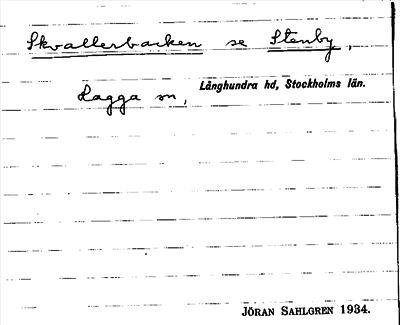 Skvallerbacken se Stenby,
Lagga sn, Långhundra hd, Stockholms län.
JÖRAN SAHLGREN 1934.